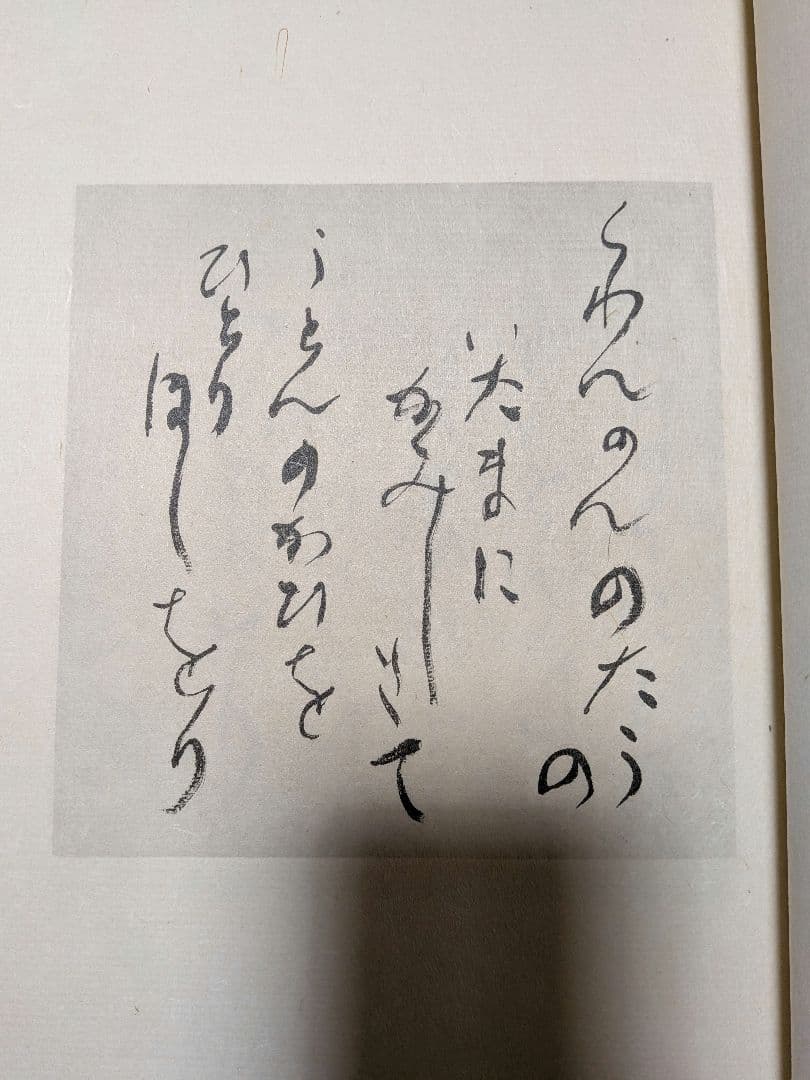 くわんのんのたう
の
いたまに
かみしきて
うとんのかひを
ひとり
ほしをり